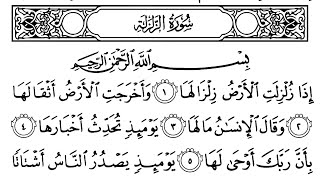 سُورَةُ الزَّلْزَلَة
بِسْمِ اللَّهِ الرَّحْمَٰنِ الرَّحِيمِ
إِذَا زُلْزِلَتِ الْأَرْضُ زِلْزَالَهَا ١ وَأَخْرَجَتِ الْأَرْضُ أَثْقَالَهَا
٢ وَقَالَ الْإِنسَانُ مَا لَهَا ٣ يَوْمَئِذٍ تُحَدِّثُ أَخْبَارَهَا ٤
بِأَنَّ رَبَّكَ أَوْحَىٰ لَهَا ٥ يَوْمَئِذٍ يَصْدُرُ النَّاسُ أَشْتَاتًا